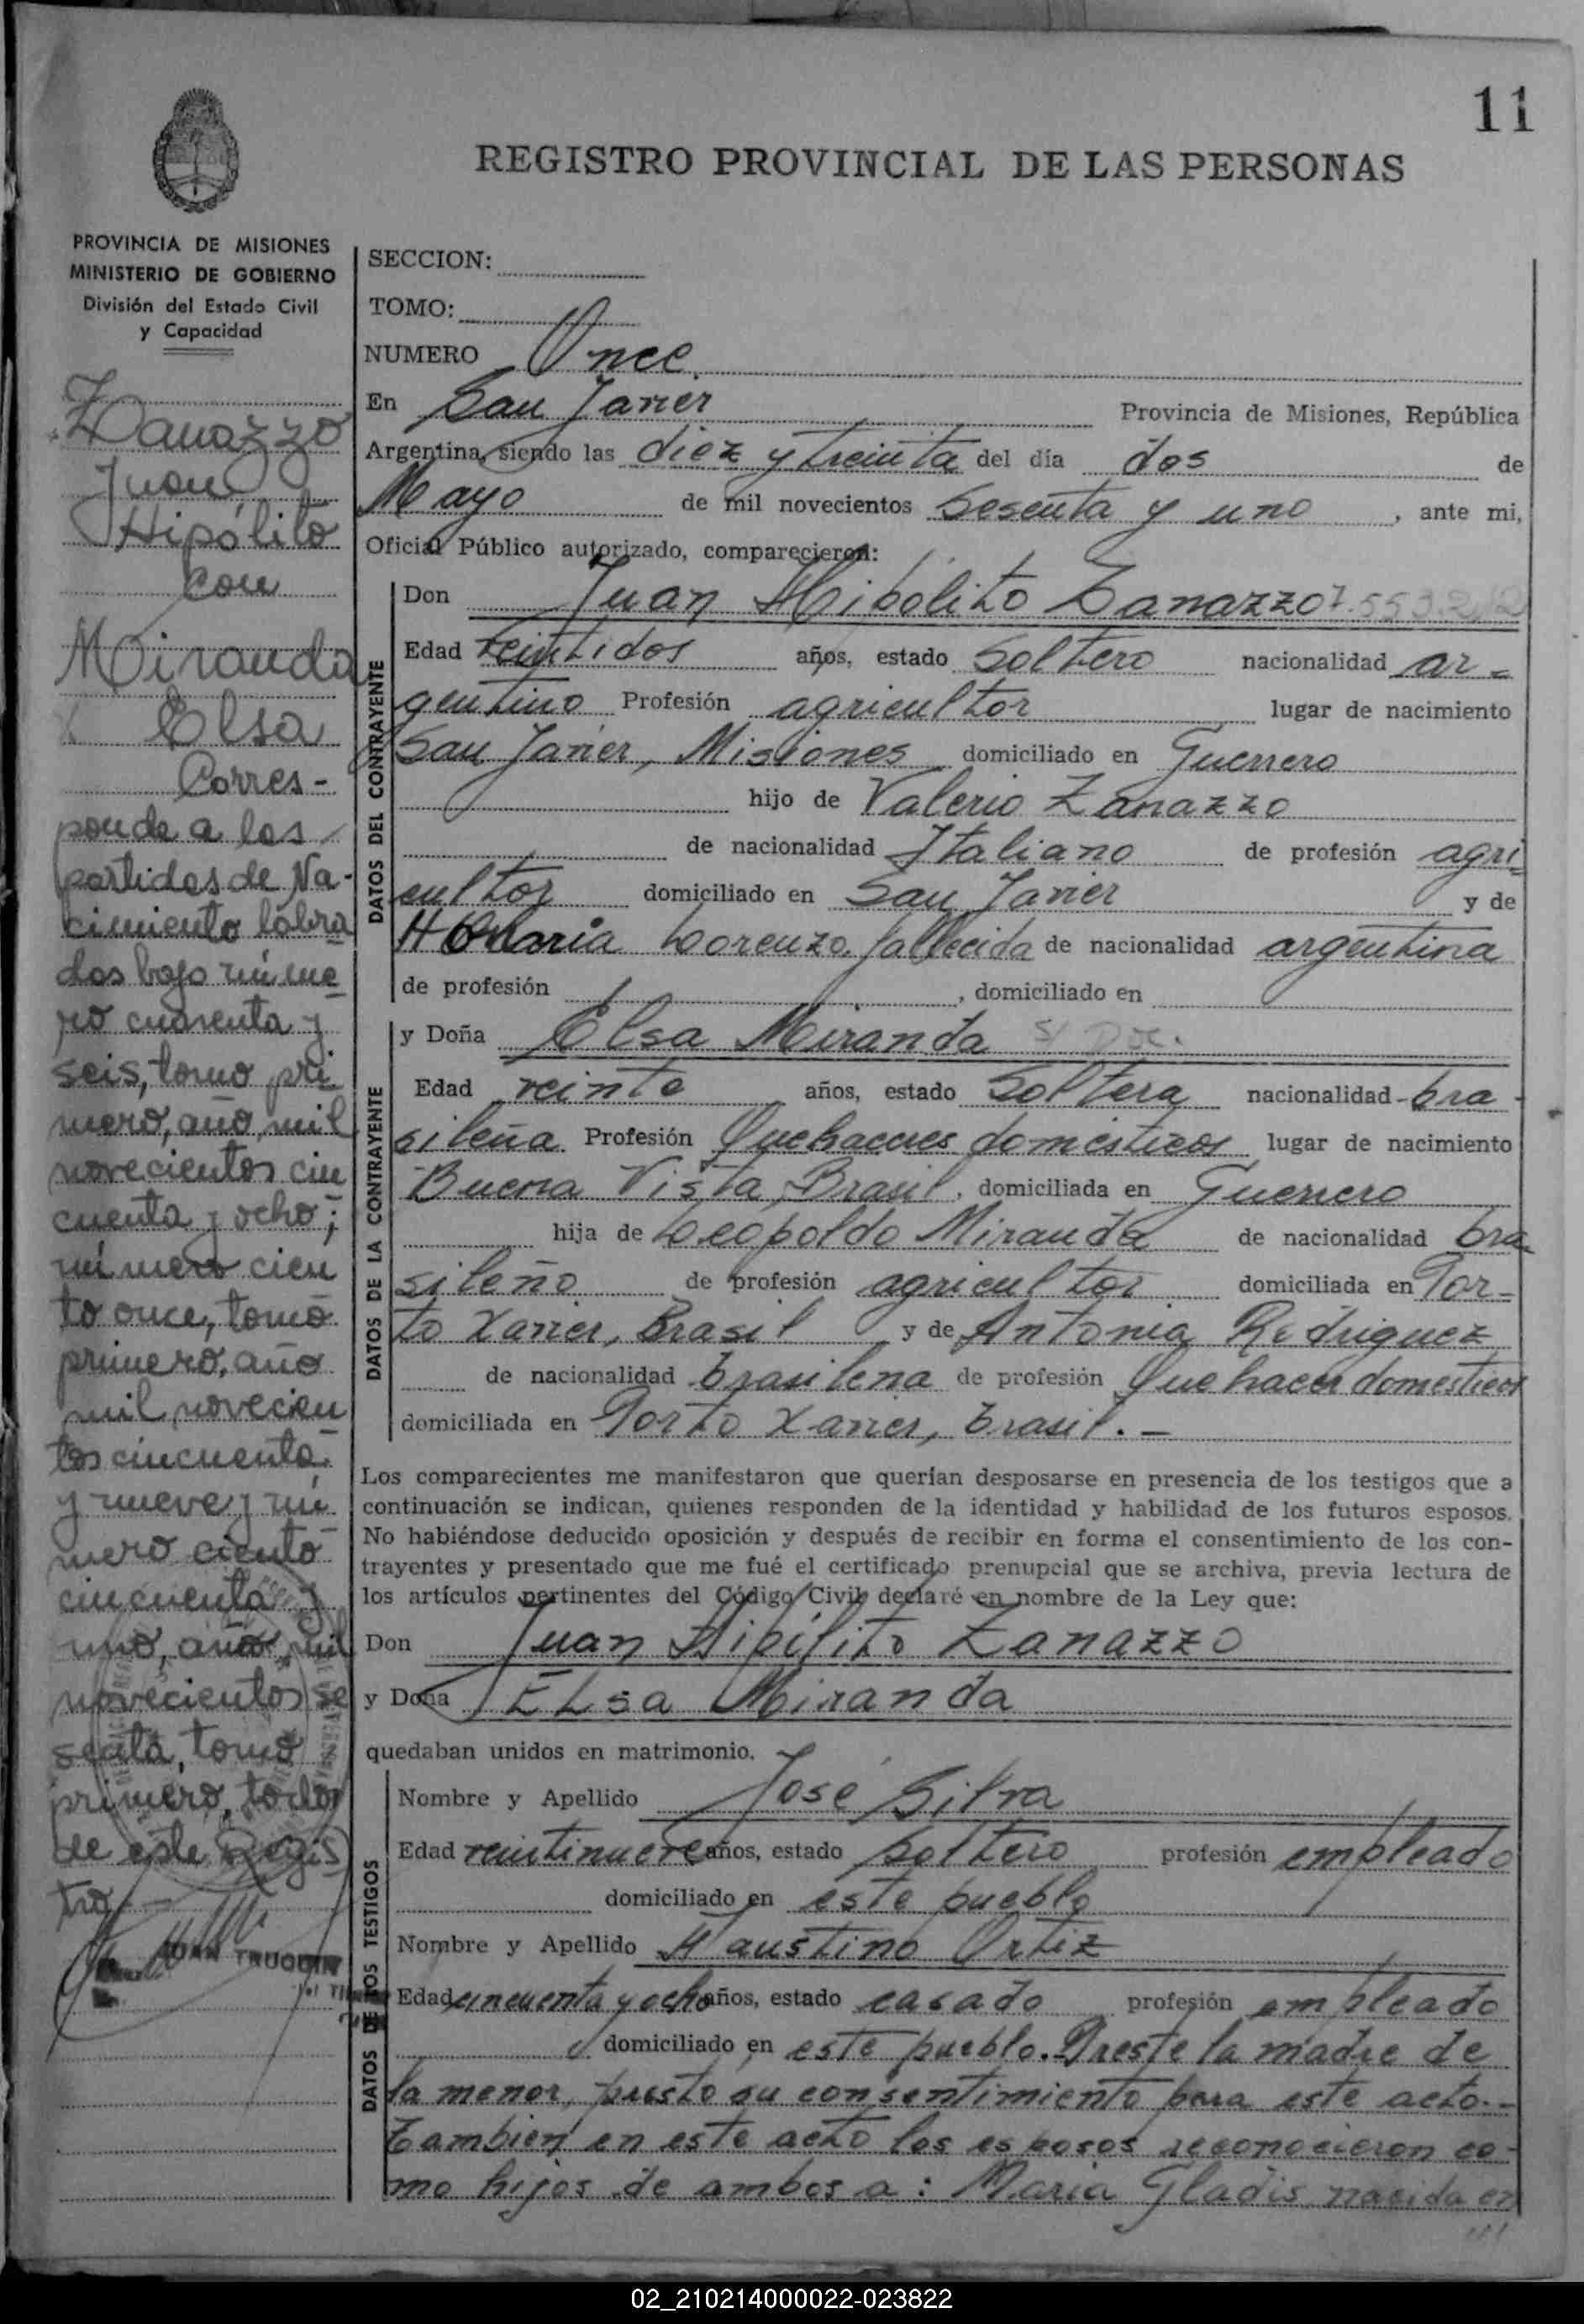 11
REGISTRO PROVINCIAL DE LAS PERSONAS
PROVINCIA DE MISIONES
MINISTERIO DE GOBIERNO
División del Estado Civil
y Capacidad
Zanazzo
Juan
Hipólito
con
Miranda
Elsa
Corres-
ponde a las
partidas de Na-
cimiento labra
das bajo núme
ro cuarenta y
seis, tomo pri
mero, año mil
novecientos cin
cuenta y ocho;
número cien
to once, tomo
primero, año
mil novecien
tos cincuenta
y nueve y nú
mero ciento
cincuenta y
uno, año mil
novecientos se
senta, tomo
primero, todos
de este Regis
tro.-
JUAN TRUQUIN
SECCION:
TOMO:
NUMERO Once
En San Javier Provincia de Misiones, República
Argentina, siendo las diez y treinta del día dos de
Mayo de mil novecientos Sesenta y uno, ante mi,
Oficial Público autorizado, comparecieron:
DATOS DEL CONTRAYENTE
Don Juan Hipólito Zanazzo 7.553.212
Edad veintidos años, estado Soltero nacionalidad ar-
gentino Profesión agricultor lugar de nacimiento
San Javier, Misiones domiciliado en Guerrero
hijo de Valerio Zanazzo
de nacionalidad Italiano de profesión agri
cultor domiciliado en San Javier y de
Maria Lorenzo, fallecida de nacionalidad argentina
de profesión , domiciliado en
DATOS DE LA CONTRAYENTE
y Doña Elsa Miranda S/ Doc.
Edad veinte años, estado Soltera nacionalidad - bra-
sileña Profesión Quehaceres domésticos lugar de nacimiento
Buena Vista, Brasil, domiciliada en Guerrero
hija de Leopoldo Miranda de nacionalidad bra
sileño de profesión agricultor domiciliada en Por-
to Xavier, Brasil y de Antonia Rodriguez
de nacionalidad brasilena de profesión Quehacer domesticos
domiciliada en Porto Xavier, Brasil. -
Los comparecientes me manifestaron que querían desposarse en presencia de los testigos que a
continuación se indican, quienes responden de la identidad y habilidad de los futuros esposos.
No habiéndose deducido oposición y después de recibir en forma el consentimiento de los con-
trayentes y presentado que me fué el certificado prenupcial que se archiva, previa lectura de
los artículos pertinentes del Código Civil declaré en nombre de la Ley que:
Don Juan Hipólito Zanazzo
y Doña Elsa Miranda
quedaban unidos en matrimonio.
DATOS DE LOS TESTIGOS
Nombre y Apellido José Silva
Edad veintinueve años, estado soltero profesión empleado
domiciliado en este pueblo
Nombre y Apellido Faustino Ortiz
Edad cincuenta y ocho años, estado casado profesión empleado
domiciliado en este pueblo. Preste la madre de
la menor, presto su consentimiento para este acto.-
Tambien en este acto los esposos reconocieron co-
mo hijos de ambos a: Maria Gladis nacida en
///
02_210214000022-023822